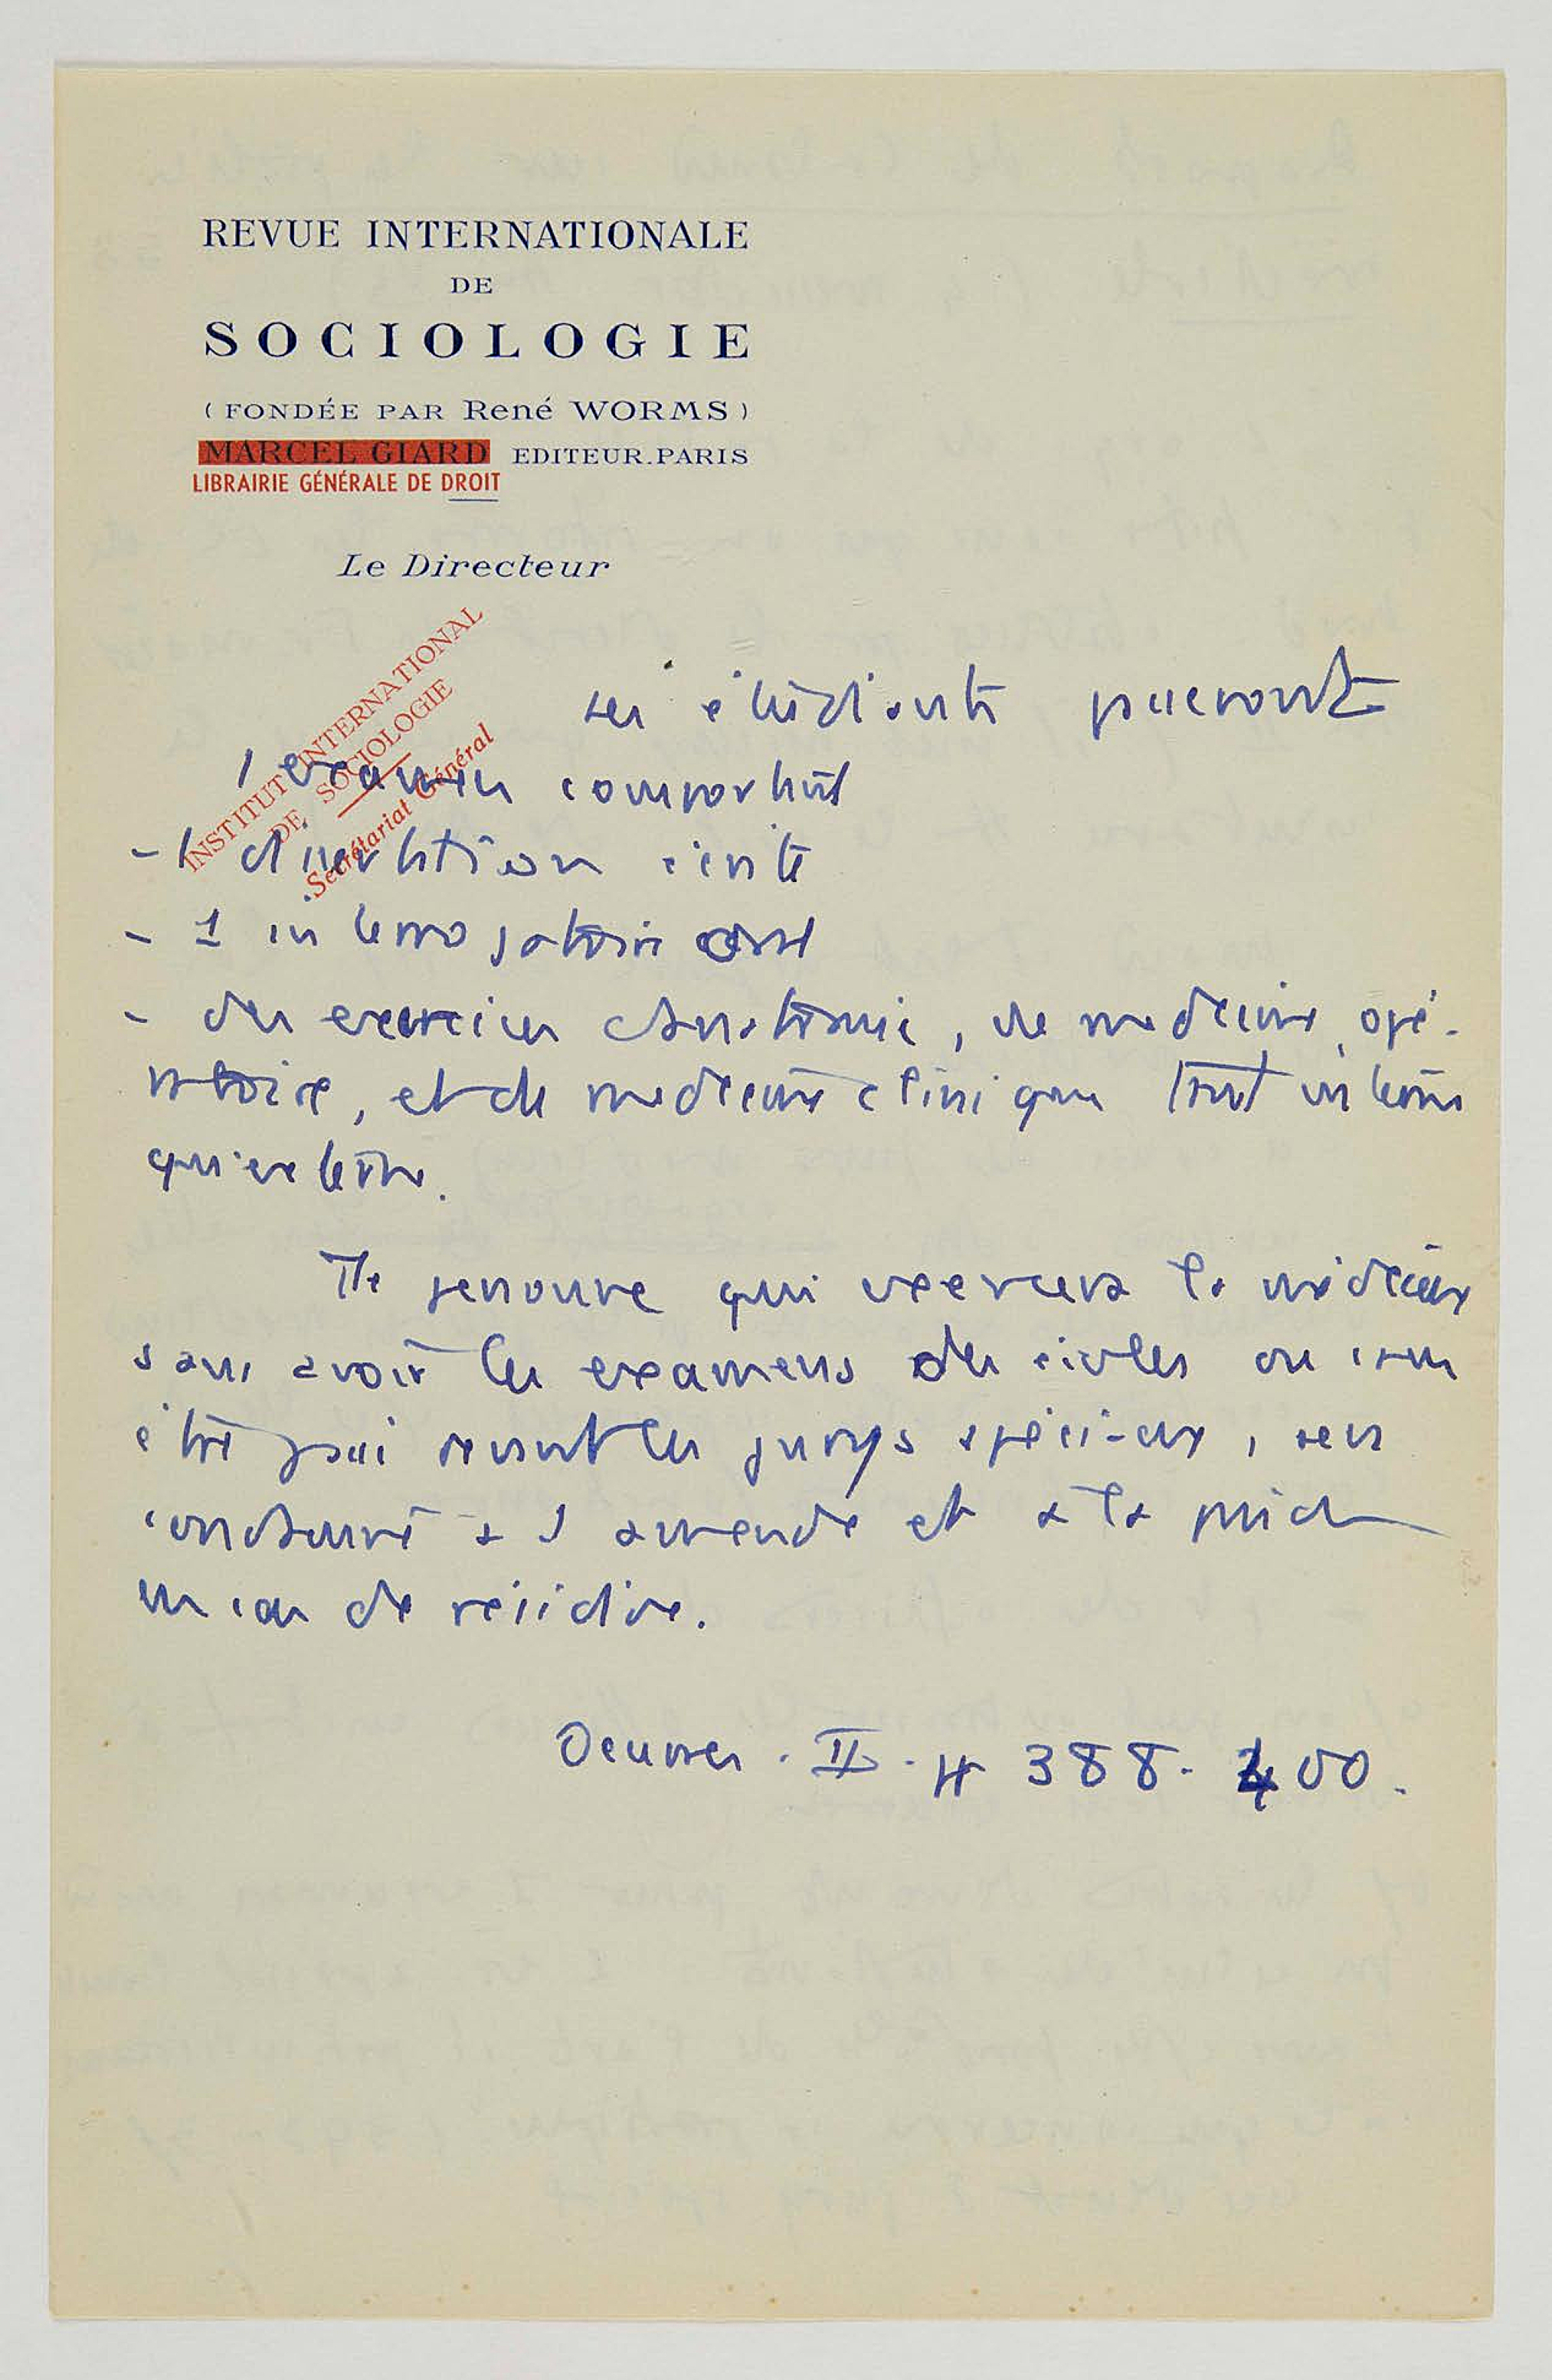 REVUE INTERNATIONALE
DE
SOCIOLOGIE
(FONDÉE PAR René WORMS)
MARCEL GIARD EDITEUR.PARIS
LIBRAIRIE GÉNÉRALE DE DROIT
Le Directeur
INSTITUT INTERNATIONAL
DE SOCIOLOGIE
Secrétariat Général
Les étudiants passeront
1 examen comportant
- 1 dissertation écrite
- 1 interrogatoire oral
- des exercices d'anatomie, de médecine opé-
ratoire, et de médecine clinique tant interne
qu'externe.
Tte personne qui exercera la médecine
sans avoir les examens des écoles ou sans
être passé devant les jurys spéciaux, sera
condamné à 1 amende et à la prison
en cas de récidive.
Oeuvres. II. 388-400.